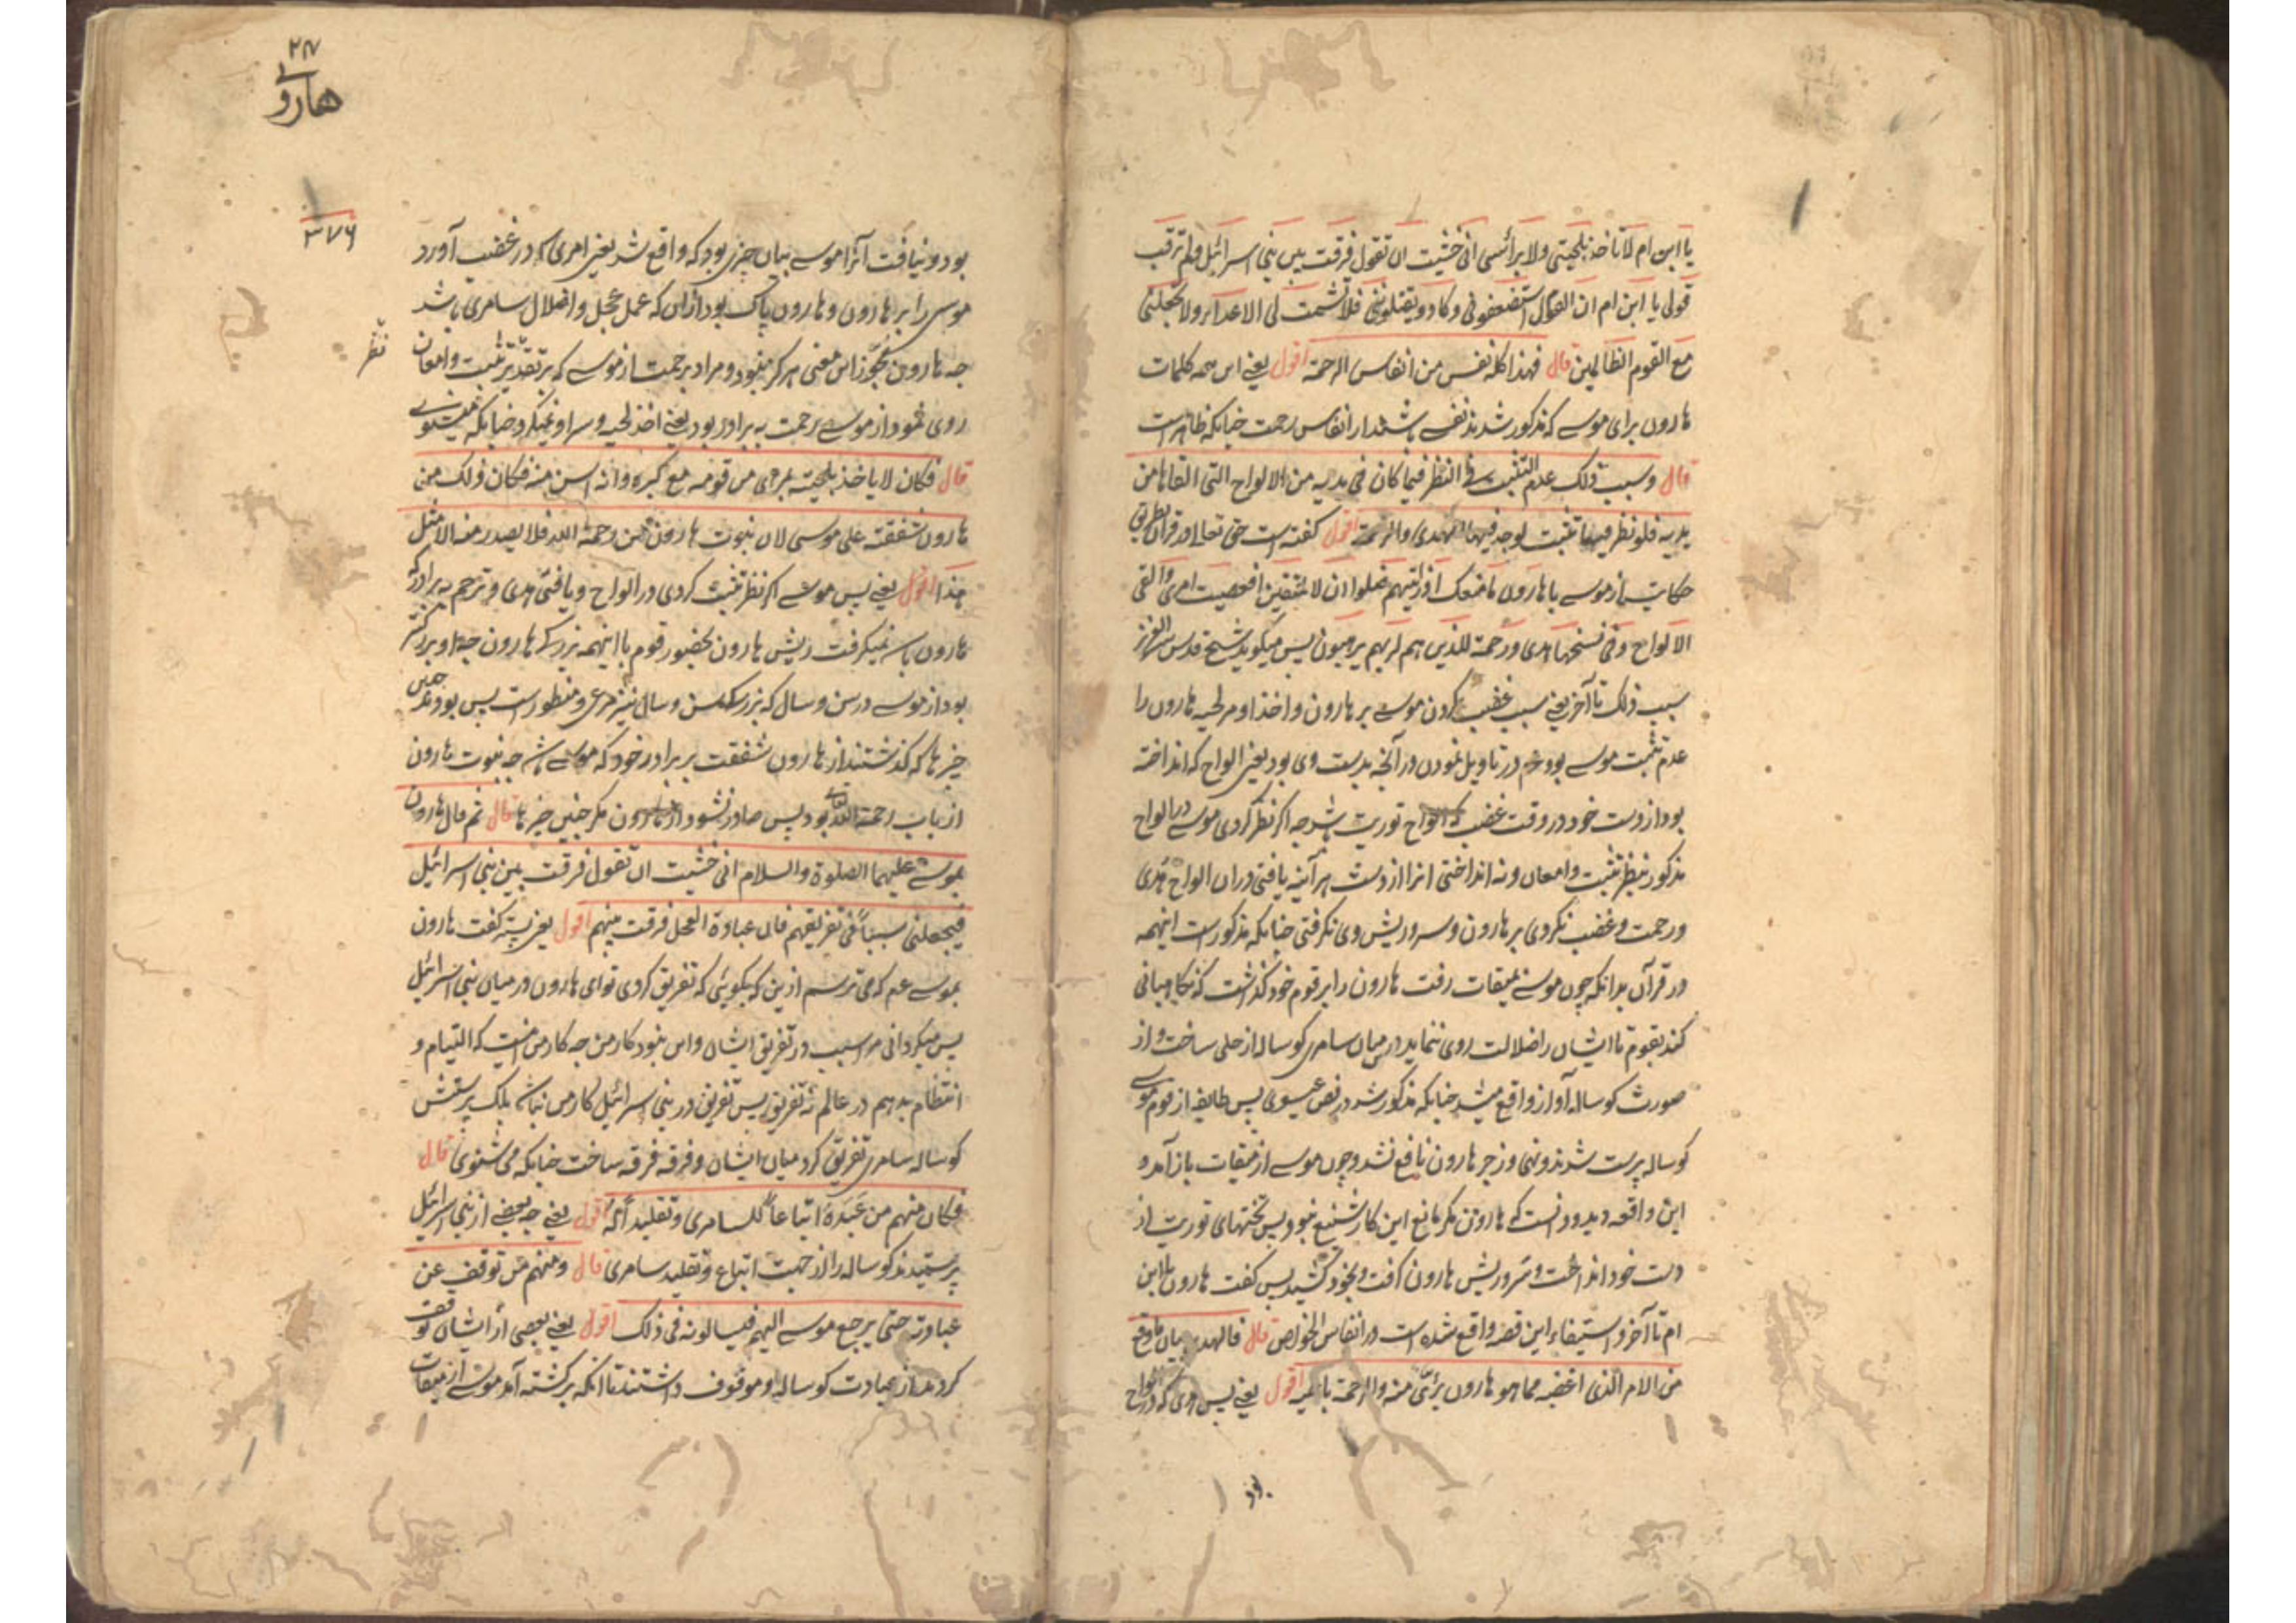 یا ابن ام لا تاخذ بلحیتی ولا براسی انی خشیت ان تقول فرقت بین بنی اسرائیل ولم ترقب
قولی یا ابن ام ان القوم استضعفونی و کادوا یقتلوننی فلا تشمت لی الاعداء ولا تجعلنی
مع القوم الظالمین قال فهذا کله نفس من انفاس الرحمة اقول یعنی این همه کلمات
هارون برای موسی که مذکور شدند نفسی باشند از انفاس رحمت چنانکه ظاهر است
قال و سبب ذلک عدم التثبت فی النظر فیما کان فی یدیه من الالواح التی القاها من
یدیه فلو نظر فیها تثبت لوجد فیها الهدی والرحمة اقول گفته است حق تعالی در قرآن بطریق
حکایت از موسی با هارون ما منعک اذ رایتهم ضلوا ان لا تتبعن افعصیت امری والقی
الالواح وفی نسختها هدی ورحمة للذین هم لربهم یرهبون پس میگوید شیخ قدس سره العزیز
سبب ذلک تا آخر یعنی سبب غضب کردن موسی بر هارون و اخذ او مر لحیه هارون را
عدم تثبت موسی بود در تاویل نمودن در آنچه بدست وی بود یعنی الواح که انداخته
بود از دست خود در وقت غضب که الواح توریت باشد چه اگر نظر کردی موسی در الواح
مذکور بنظر تثبت و امعان و نه انداختی انرا از دست هر آینه یافتی در ان الواح هدی
و رحمت و غضب نکردی بر هارون و سر و ریش وی نگرفتی چنانکه مذکور است اینهمه
در قرآن بدانکه چون موسی بمیقات رفت هارون را بر قوم خود گذاشت که نگاهبانی
کند بقوم تا ایشان را ضلالت روی ننماید در میان سامری گوساله از حلی ساخت و از
صورت گوساله آواز واقع میشد چنانکه مذکور شد در نص عیسوی پس طایفه از قوم موسی
گوساله پرست شدند و نهی و زجر هارون نافع نشد و چون موسی از میقات باز آمد و
این واقعه دید و دانست که هارون مگر مانع این کار شنیع نبود پس تختهای توریت از
دست خود انداخت و سر و ریش هارون گرفت و بخود کشید پس گفت هارون یا ابن
ام تا آخر و استیفاء این قصه واقع شده است در انفاس الخواص قال فالهدی بیان ما وقع
من الامر الذی اغضبه مما هو هارون برئی منه والرحمة باخیه اقول یعنی پس هدی که در الواح
بود
۲۴
هارونی
۳۷۶
بود و نیافت آنرا موسی بیان چیزی بود که واقع شد یعنی امری که در غضب آورد
موسی را بر هارون و هارون پاک بود از ان که عمل عجل و اضلال سامری باشد
چه هارون مجوز این معنی هرگز نبود و مراد برحمت از موسی که بر تقدیر تثبت و امعان
نظر
روی نمود از موسی رحمت به برادر بود یعنی اخذ لحیه و سر او نمیکرد چنانکه میشنوی
قال فکان لا یاخذ بلحیته بمرای من قومه مع کبره وانه اسن منه فکان ذلک من
هارون شفقة علی موسی لان نبوت هارون من رحمة الله فلا یصدر منه الا مثل
هذا اقول یعنی پس موسی اگر نظر تثبت کردی در الواح و یافتی هدی و ترحم به برادر که
هارون باشد نمیگرفت ریش هارون بحضور قوم با اینهمه بزرگی هارون چه او بزرگتر
بود از موسی در سن و سال که بزرگی سن و سال نیز مرعی و منظور است پس بود همین
چیزها که گذشتند از هارون شفقت بر برادر خود که موسی باشد چه نبوت هارون
از باب رحمة الله تعالی بود پس صادر نشود از هارون مگر چنین چیزها قال ثم قال هارون
بموسی علیهما الصلوة والسلام انی خشیت ان تقول فرقت بین بنی اسرائیل
فیجعلنی سببا فی تفریقهم فان عبادة العجل فرقت بینهم اقول یعنی پستر گفت هارون
بموسی عم که می ترسم ازین که بگوئی که تفریق کردی تو ای هارون در میان بنی اسرائیل
پس میگردانی مرا سبب در تفریق ایشان و این نبود کار من چه کار من اینست که التیام و
انتظام بدهم در عالم نه تفریق پس تفریق در بنی اسرائیل کار من نباشد بلکه پرستش
گوساله سامری تفریق کرد میان ایشان و فرقه فرقه ساخت چنانکه می شنوی قال
فکان منهم من عبده اتباعا للسامری و تقلیدا له اقول یعنی چه بعضی از بنی اسرائیل
پرستیدند گوساله را از جهت اتباع و تقلید سامری قال ومنهم من توقف عن
عبادته حتی یرجع موسی الیهم فیسالونه فی ذلک اقول یعنی بعضی از ایشان توقف
کردند از عبادت گوساله و موقوف داشتند تا آنکه برگشته آمد موسی از میقات